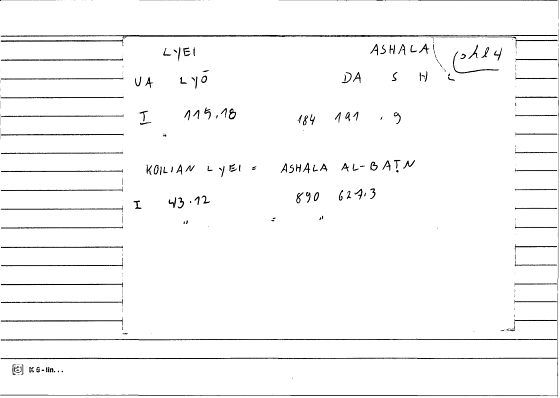 LYEI ASHALA shl4
VA LYŌ DA S H L
I 115.18 184 191 . 9
"
KOILIAN LYEI = ASHALA AL-BAṬN
I 43.12 890 624.3
" = "
K6-lin...